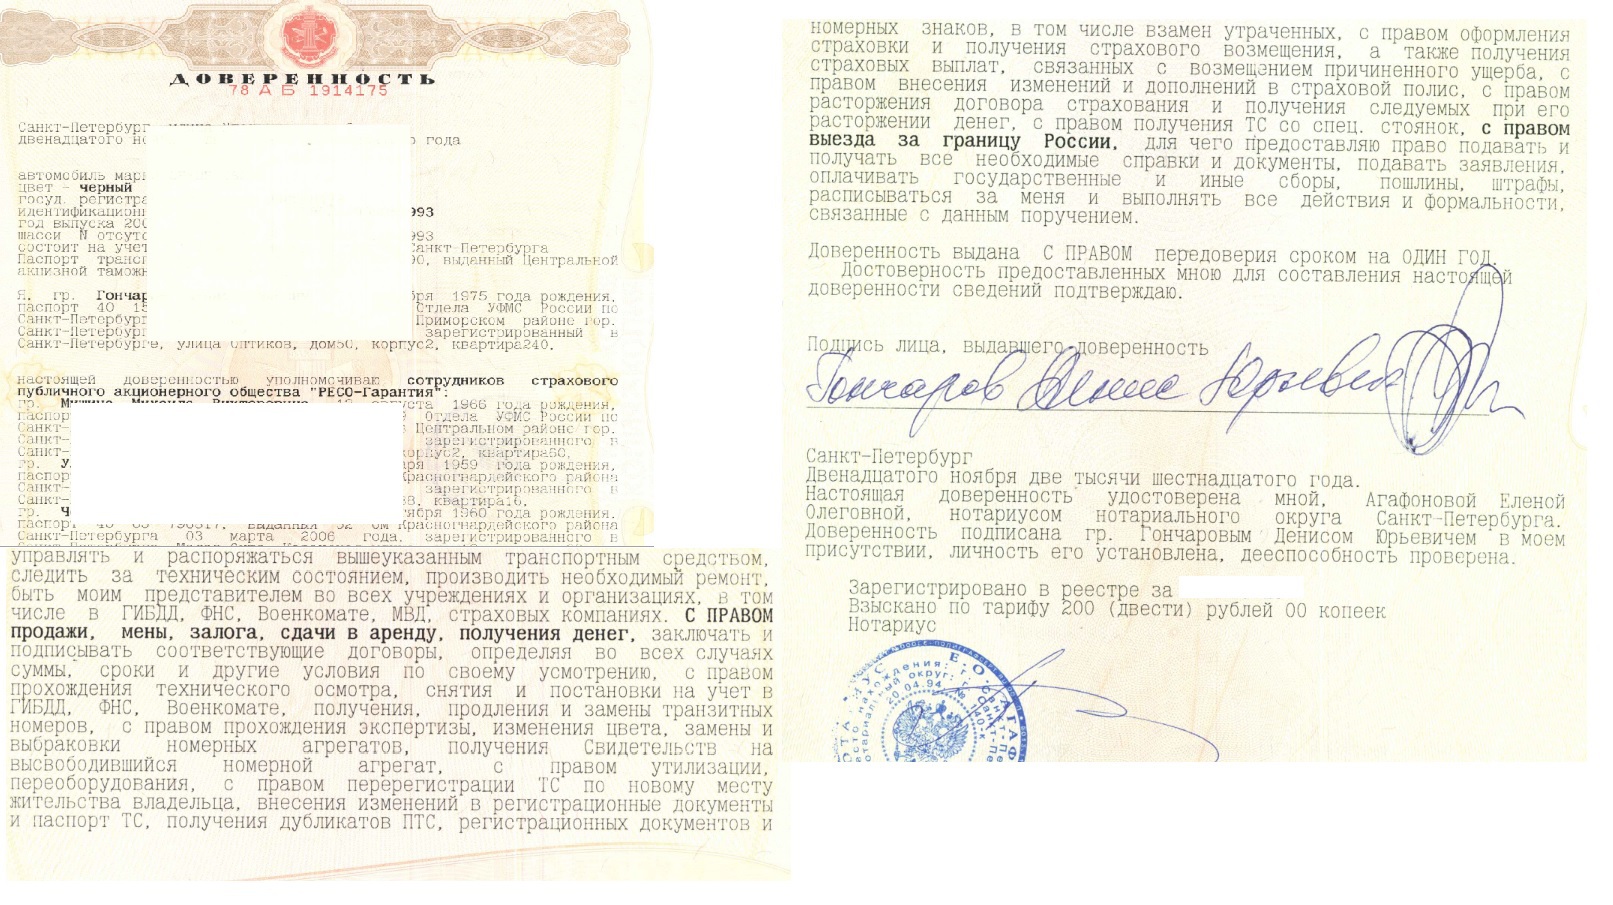 ДОВЕРЕННОСТЬ
78 А Б 1914175
Санкт-Петербург
двенадцатого года
автомобиль
цвет – черный
госуд.
993
год выпуска
шасси N отсут
993
состоит на учет Санкт-Петербурга
Паспорт выданный Центральной
акцизной
Я, гр. Гончар 1975 года рождения,
паспорт 40 Отдела УФМС России по
Санкт-Петербург Приморском районе гор.
Санкт-Петербург зарегистрированный в
Санкт-Петербурге, улица Оптиков, дом50, корпус2, квартира240.
настоящей доверенностью уполномочиваю сотрудников страхового
публичного акционерного общества "РЕСО-Гарантия":
гр. 1966 года рождения,
паспор Отдела УФМС России по
Санкт- Центральном районе гор.
Санкт- зарегистрированного в
Санкт- квартира50,
гр. 1959 года рождения,
паспор Красногвардейского района
Санкт- зарегистрированного в
Санкт- квартира16,
гр. 1960 года рождения,
паспорт Красногвардейского района
Санкт-Петербурга 03 марта 2006 года, зарегистрированного в
управлять и распоряжаться вышеуказанным транспортным средством,
следить за техническим состоянием, производить необходимый ремонт,
быть моим представителем во всех учреждениях и организациях, в том
числе в ГИБДД, ФНС, Военкомате, МВД, страховых компаниях. С ПРАВОМ
продажи, мены, залога, сдачи в аренду, получения денег, заключать и
подписывать соответствующие договоры, определяя во всех случаях
суммы, сроки и другие условия по своему усмотрению, с правом
прохождения технического осмотра, снятия и постановки на учет в
ГИБДД, ФНС, Военкомате, получения, продления и замены транзитных
номеров, с правом прохождения экспертизы, изменения цвета, замены и
выбраковки номерных агрегатов, получения Свидетельств на
высвободившийся номерной агрегат, с правом утилизации,
переоборудования, с правом перерегистрации ТС по новому месту
жительства владельца, внесения изменений в регистрационные документы
и паспорт ТС, получения дубликатов ПТС, регистрационных документов и
номерных знаков, в том числе взамен утраченных, с правом оформления
страховки и получения страхового возмещения, а также получения
страховых выплат, связанных с возмещением причиненного ущерба, с
правом внесения изменений и дополнений в страховой полис, с правом
расторжения договора страхования и получения следуемых при его
расторжении денег, с правом получения ТС со спец. стоянок, с правом
выезда за границу России, для чего предоставляю право подавать и
получать все необходимые справки и документы, подавать заявления,
оплачивать государственные и иные сборы, пошлины, штрафы,
расписываться за меня и выполнять все действия и формальности,
связанные с данным поручением.
Доверенность выдана С ПРАВОМ передоверия сроком на ОДИН ГОД.
Достоверность предоставленных мною для составления настоящей
доверенности сведений подтверждаю.
Подпись лица, выдавшего доверенность
Гончаров Денис Юрьевич
Санкт-Петербург
Двенадцатого ноября две тысячи шестнадцатого года.
Настоящая доверенность удостоверена мной, Агафоновой Еленой
Олеговной, нотариусом нотариального округа Санкт-Петербурга.
Доверенность подписана гр. Гончаровым Денисом Юрьевичем в моем
присутствии, личность его установлена, дееспособность проверена.
Зарегистрировано в реестре за
Взыскано по тарифу 200 (двести) рублей 00 копеек
Нотариус